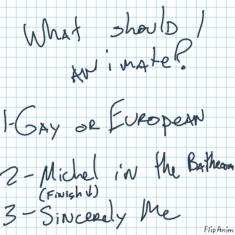 What should I
animate?
1-Gay or European
2-Michel in the Bathroom
(Finish↓)
3-Sincerely Me
FlipAnim